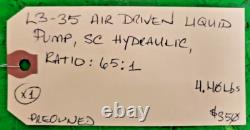 L3-35 AIR DRIVEN LIQUID
PUMP, SC HYDRAULIC,
RATIO: 65:1
4.40Lbs
x1
$350
PREOWNED